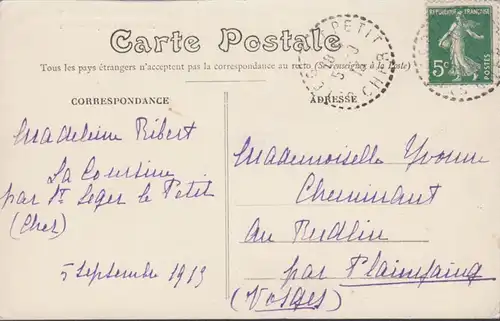 Carte Postale
Tous les pays étrangers n'acceptent pas la correspondance au recto (Se renseigner à la Poste)
CORRESPONDANCE
ADRESSE
Madeleine Ribert
La Coursine
par St Leger le Petit
(Cher)
5 Septembre 1913
Mademoiselle Yvonne
Cheminant
au Rudlin
par Plainfaing
(Vosges)
REPUBLIQUE FRANÇAISE
5c
POSTES
PETIT
CHER